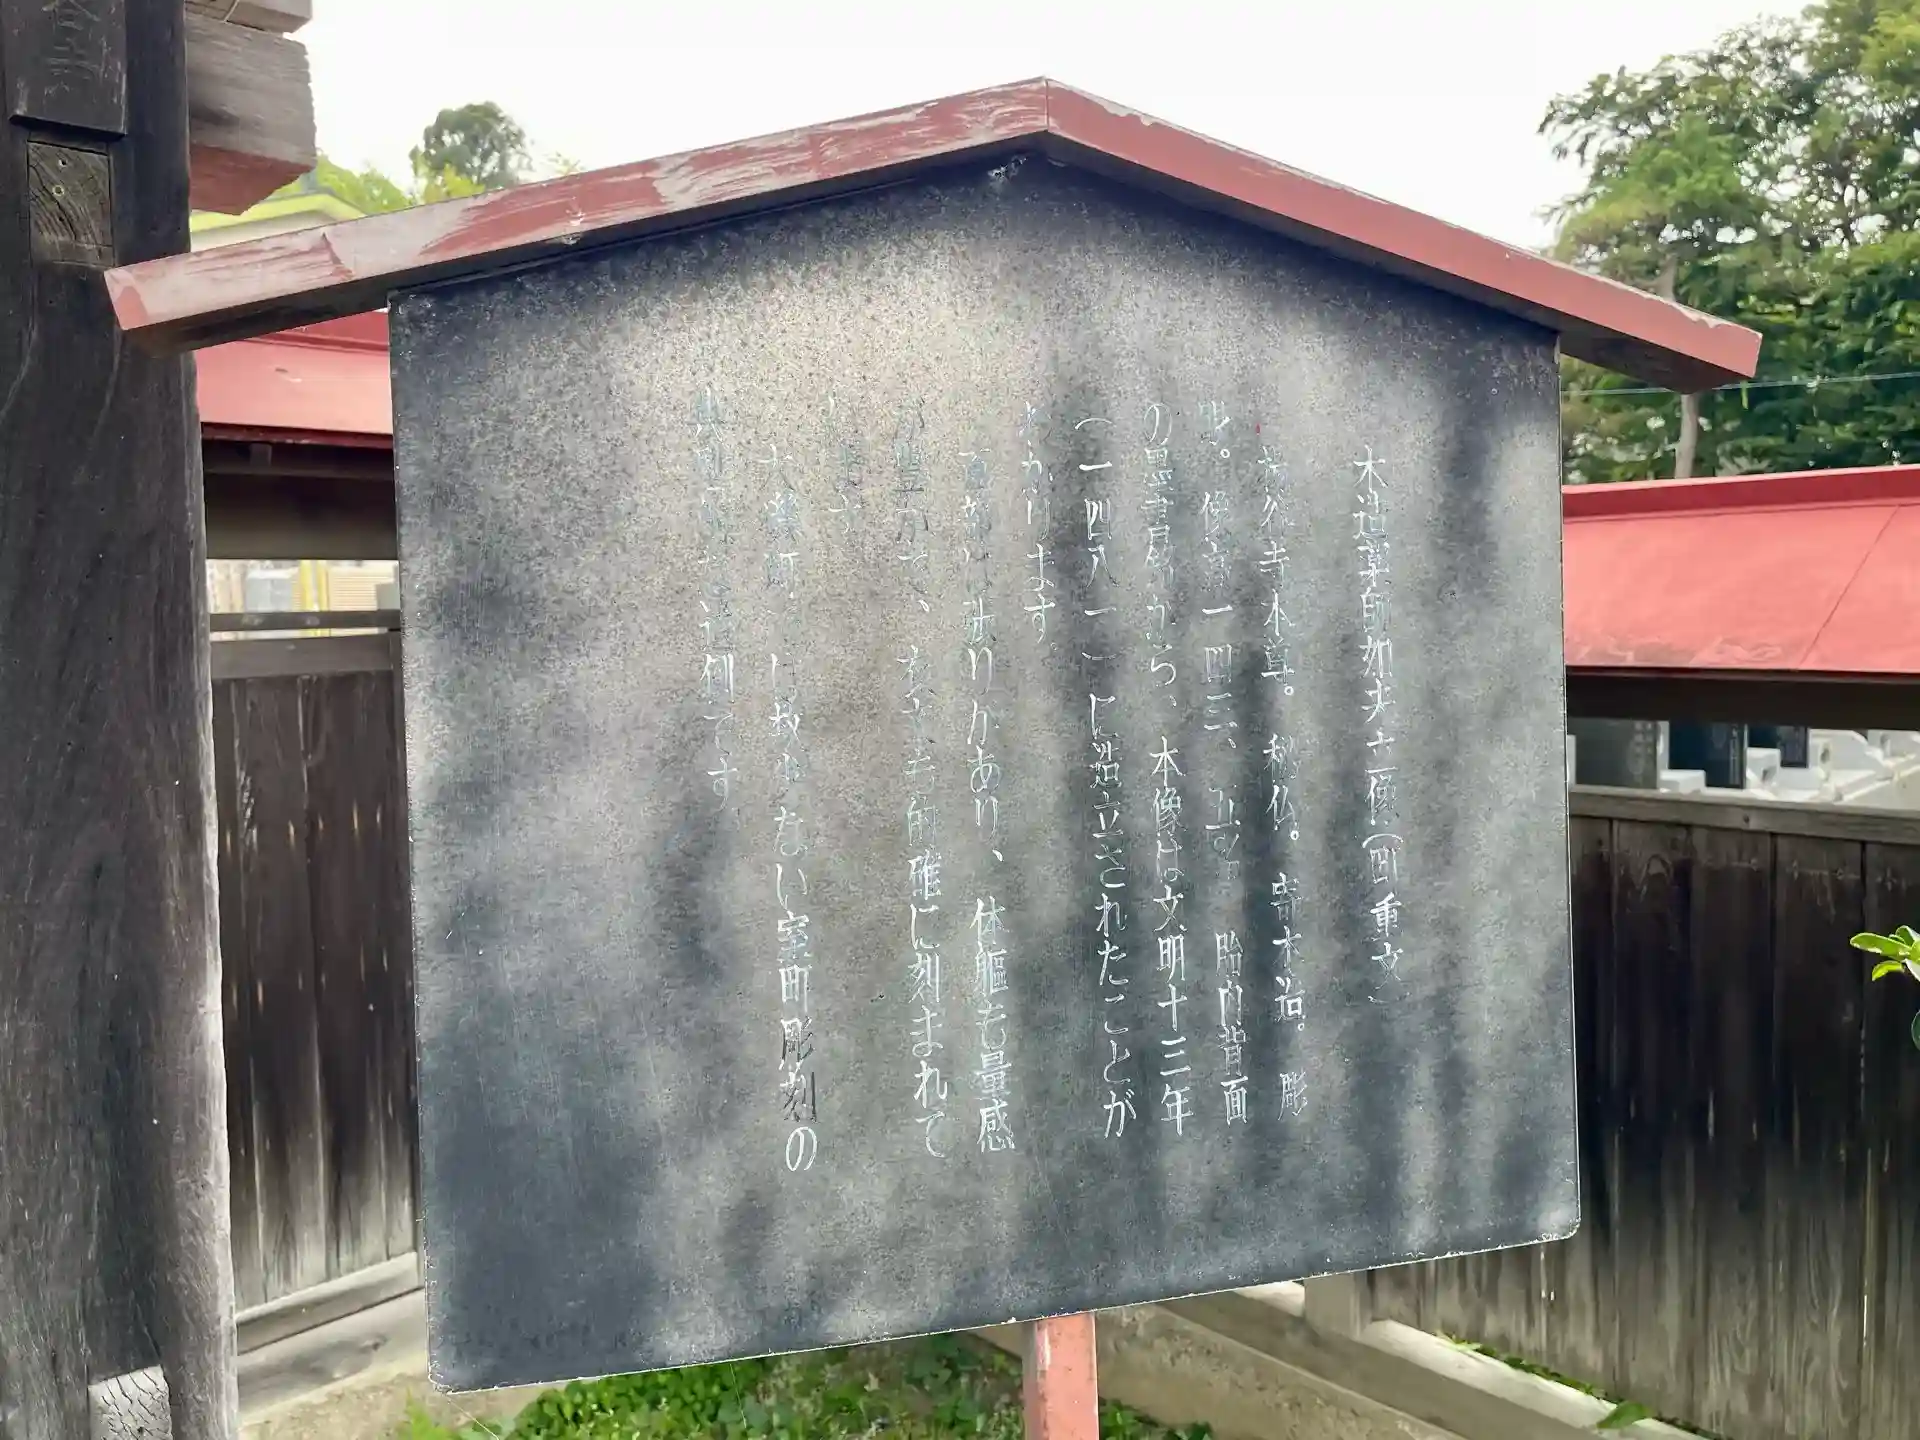 木造薬師如来立像(町重文)
寺本尊。秘仏。寄木造。彫
眼。像高一四三、五㌢ 胎内背面
の墨書銘から、本像は文明十三年
(一四八一)に造立されたことが
わかります。
面部は張りがあり、体軀も量感
が豊かで、衣文も的確に刻まれて
います
大磯町には数少ない室町彫刻の
典型 例です